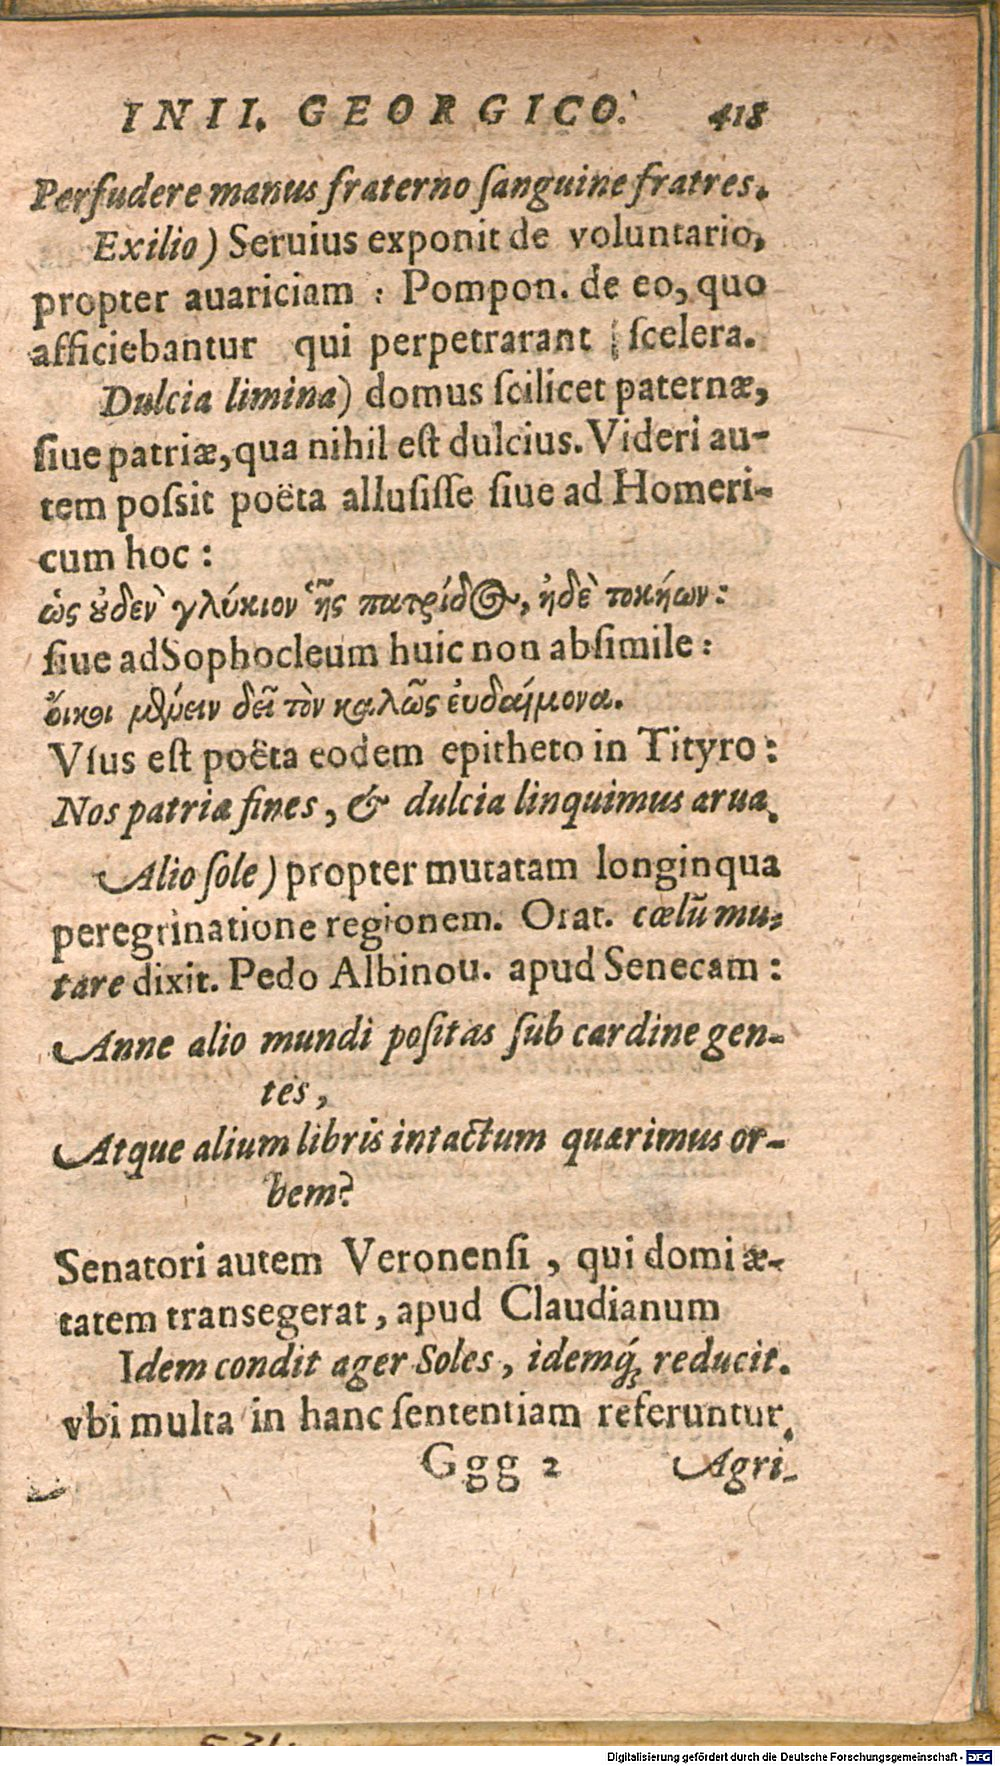 IN II. GEORGICO. 418
Perfudere manus fraterno ſanguine fratres.
Exilio) Seruius exponit de voluntario,
propter auariciam : Pompon. de eo, quo
afficiebantur qui perpetrarant ſcelera.
Dulcia limina) domus ſcilicet paternæ,
ſiue patriæ, qua nihil eſt dulcius. Videri au-
tem poſsit poëta alluſiſſe ſiue ad Homeri-
cum hoc :
ὡς οὐδεν γλύκιον ἧς πατρίδος, ἠδὲ τοκήων:
ſiue ad Sophocleum huic non abſimile :
οἴκοι μένειν δεῖ τὸν καλῶς ἐυδαίμονα.
Vſus eſt poëta eodem epitheto in Tityro :
Nos patriæ fines, & dulcia linquimus arua.
Alio ſole) propter mutatam longinqua
peregrinatione regionem. Orat. cœlũ mu-
tare dixit. Pedo Albinou. apud Senecam :
Anne alio mundi poſitas ſub cardine gen-
tes,
Atque alium libris intactum quærimus or-
bem?
Senatori autem Veronenſi, qui domi æ-
tatem transegerat, apud Claudianum
Idem condit ager Soles, idemq́; reducit.
vbi multa in hanc ſententiam referuntur.
Ggg 2 Agri-
Digitalisierung gefördert durch die Deutsche Forschungsgemeinschaft - DFG